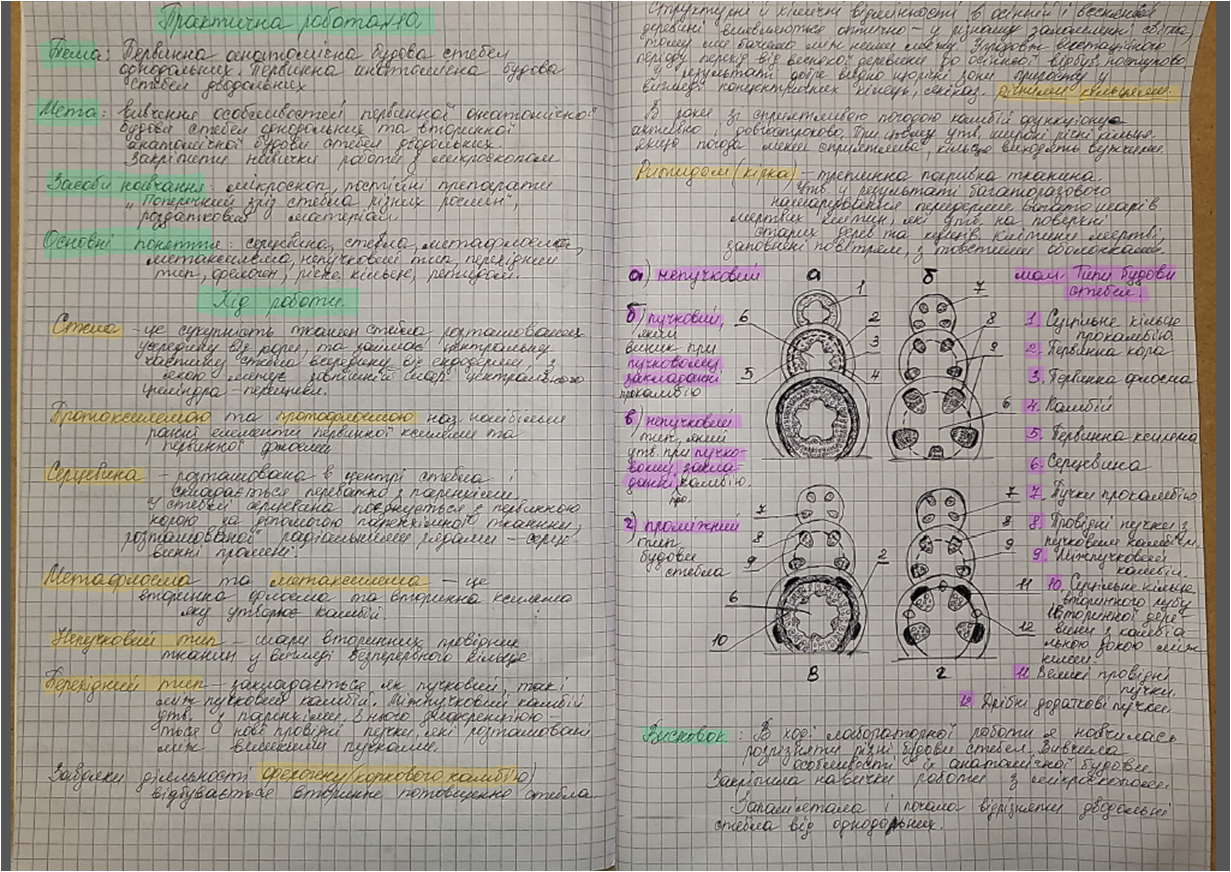 Практична робота №10.
Тема: Первинна анатомічна будова стебел
однодольних. Первинна анатомічна будова
стебел дводольних
Мета: вивчення особливостей первинної анатомічної
будови стебел однодольних та вторинної
анатомічної будови стебел дводольних.
Закріпити навички роботи з мікроскопом
Засоби навчання: мікроскоп, постійні препарати
"Поперечний зріз стебла різних рослин",
роздатковий матеріал.
Основні поняття: серцевина, стебла, метафлоема,
метаксилема, непучковий тип, перехідний
тип, фелоген, річне кільце, ритидом.
Хід роботи.
Стела - це сукупність тканин стебла розташованих
усередину від кори, та займає центральну
частину стебла всередину від ендодерми, з
якою межує зовнішній шар центрального
циліндра - перицикл.
Протоксилемою та протофлоемою наз. найбільш
ранні елементи первинної ксилеми та
первинної флоеми
Серцевина - розташована в центрі стебла і
складається переважно з паренхіми.
У стеблі серцевина поєднується з первинною
корою за допомогою паренхімної тканини,
розташованої радіальними рядами - серце-
винні промені.
Метафлоема та метаксилема - це
вторинна флоема та вторинна ксилема
яку утворює камбій
Непучковий тип - шари вторинних провідних
тканин у вигляді безперервного кільця
Перехідний тип - закладається як пучковий, так і
міжпучковий камбій. Міжпучковий камбій
утв. у паренхімі. З нього диференцію-
ться нові провідні пучки, які розташовані
між великими пучками.
Завдяки діяльності фелогену (коркового камбію)
відбувається вторинне потовщення стебла
Структурні й хімічні відмінності в осінній і весняній
деревині виявляються оптично - у різному заломленні світла,
тому ми бачимо між ними межу. Упродовж вегетаційного
періоду перехід від весняної деревини до осінньої відбув. поступово
У результаті добре видно щорічні зони приросту у
вигляді концентричних кілець, річними кільцями.
В роки зі сприятливою погодою камбій функціонує
активно і довгостроково. При цьому утв. широкі річні кільця.
якщо погода менш сприятлива, кільця виходять вужчими.
Ритидом (кірка) - третинна покривна тканина.
Утв. у результаті багаторазового
нашарування перидерми багатошарів
мертвих клітин, які утв. на поверхні
старих дерев та кущів. Клітини мертві,
заповнені повітрям, з товстими оболонками
а) непучковий
б) пучковий,
який
виник при
пучковому
закладанні
прокамбію
в) непучковий
тип, який
утв. при пучко-
вому закла-
данні камбію.
про.
г) проміжний
тип
будови
стебла
а
б
1
6
2
3
5
4
7
8
9
6
7
8
9
2
6
10
7
8
9
11
12
в
г
мал. Типи будови
стебел.
1. Суцільне кільце
прокамбію.
2. Первинна кора
3. Первинна флоема
4. Камбій
5. Первинна ксилема
6. Серцевина
7. Пучки прокамбію
8. Провідні пучки з
пучковим камбієм.
9. Міжпучковий
камбій.
10. Суцільне кільце
вторинного лубу
і вторинної дере-
вини з камбіа-
льною зоною між
ними.
11. Великі провідні
пучки.
12. Дрібні додаткові пучки.
Висновок: В ході лабораторної роботи я навчилась
розрізняти різні будови стебел. Вивчила
особливості їх анатомічної будови
Закріпила навички роботи з мікроскопом.
Запам'ятала і почала відрізняти дводольні
стебла від однодольних.